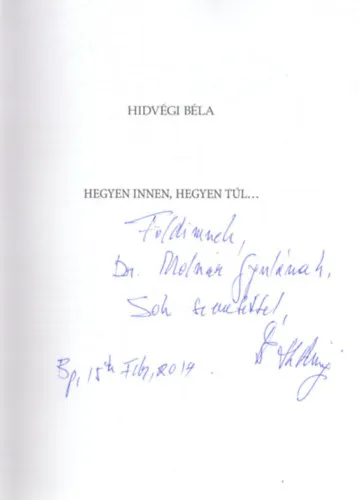 HIDVÉGI BÉLA
HEGYEN INNEN, HEGYEN TÚL...
Földimnek,
Dr. Molnár Gyulának,
Sok szeretettel,
Bp, 15th Feb, 2019